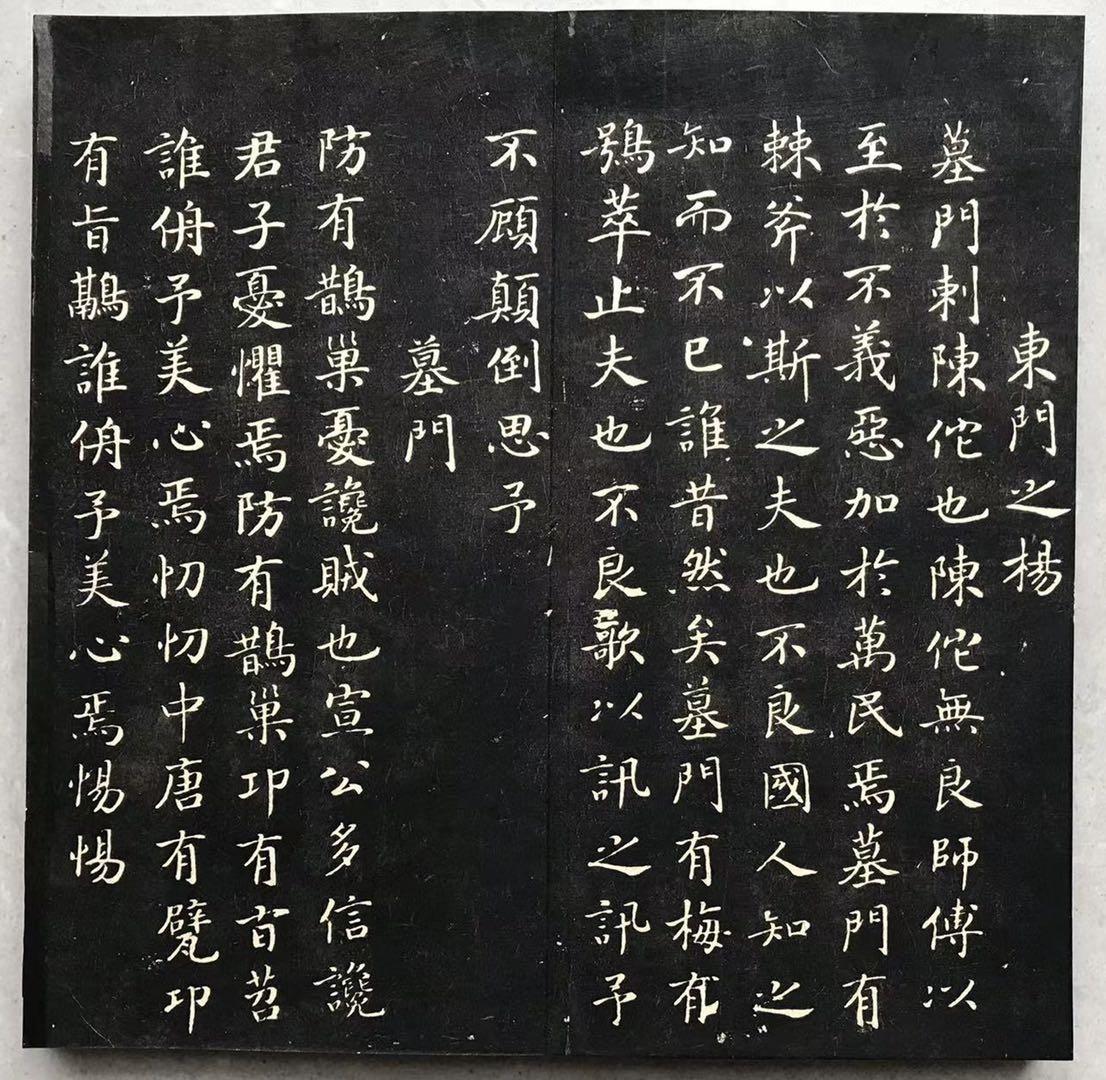 東門之楊
墓門刺陳佗也陳佗無良師傅以
至於不義惡加於萬民焉墓門有
棘斧以斯之夫也不良國人知之
知而不已誰昔然矣墓門有梅有
鴞萃止夫也不良歌以訊之訊予
不顧顛倒思予
墓門
防有鵲巢憂讒賊也宣公多信讒
君子憂懼焉防有鵲巢卭有旨苕
誰侜予美心焉忉忉中唐有甓卭
有旨鷊誰侜予美心焉惕惕